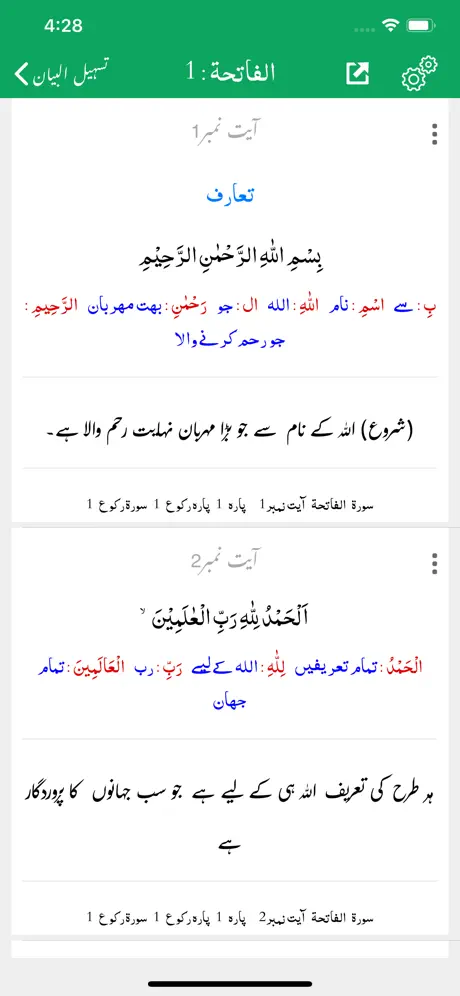 4:28
تسہیل البیان
الفاتحة : 1
آیت نمبر1
تعارف
بِسْمِ اللّٰهِ الرَّحْمٰنِ الرَّحِيْمِ
بِ: سے اسْمِ: نام اللّٰهِ: الله ال: جو رَحْمٰنِ: بهت مهربان الرَّحِيمِ:
جو رحم کرنے والا
(شروع) اللہ کے نام سے جو بڑا مہربان نہایت رحم والا ہے۔
سورة الفاتحة آیت نمبر1 پارہ 1 پارہ رکوع 1 سورۃ رکوع 1
آیت نمبر2
اَلْحَمْدُ لِلّٰهِ رَبِّ الْعٰلَمِيْنَ ۙ
الْحَمْدُ: تمام تعریفیں لِلّٰهِ: الله کے لیے رَبِّ: رب الْعَالَمِينَ: تمام
جهان
ہر طرح کی تعریف اللہ ہی کے لیے ہے جو سب جہانوں کا پروردگار
ہے
سورة الفاتحة آیت نمبر2 پارہ 1 پارہ رکوع 1 سورۃ رکوع 1